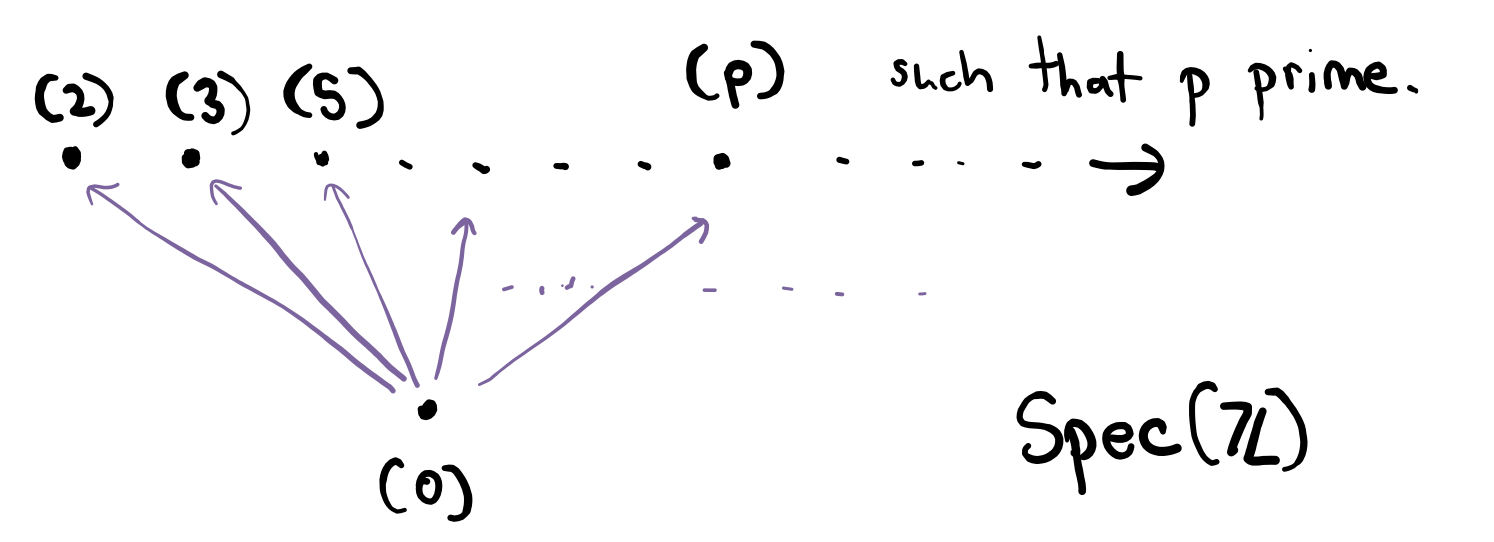 (2) (3) (5) (p) such that p prime.
(0)
Spec(ℤ)